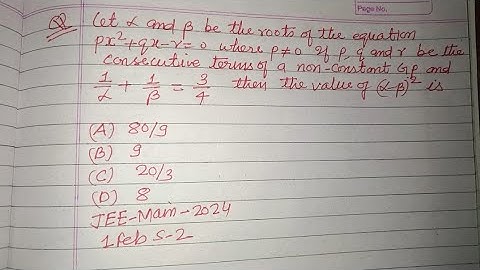 Page No.
Q Let α and β be the roots of the equation
px²+qx-r=0 where p≠0 If p, q and r be the
consecutive terms of a non-constant GP and
1/α + 1/β = 3/4 then the value of (α-β)² is
(A) 80/9
(B) 9
(C) 20/3
(D) 8
JEE-Main-2024
1 feb S-2